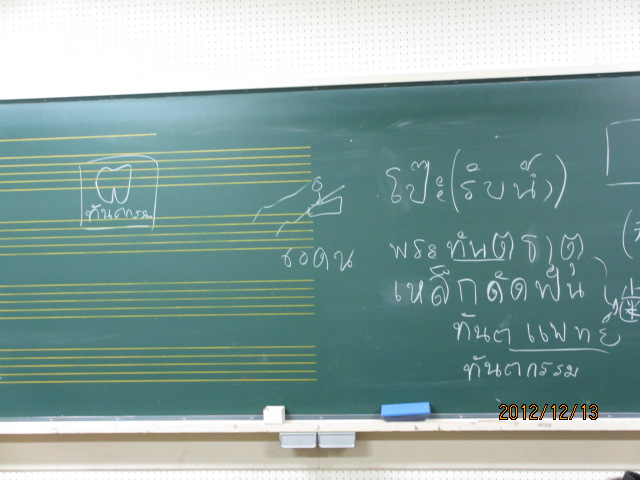 ทันตกรรม
โป๊ะ(รับน้ำ)
พระทันตธาตุ
เหล็กดัดฟัน
ทันตแพทย์
ทันตกรรม
2012/12/13